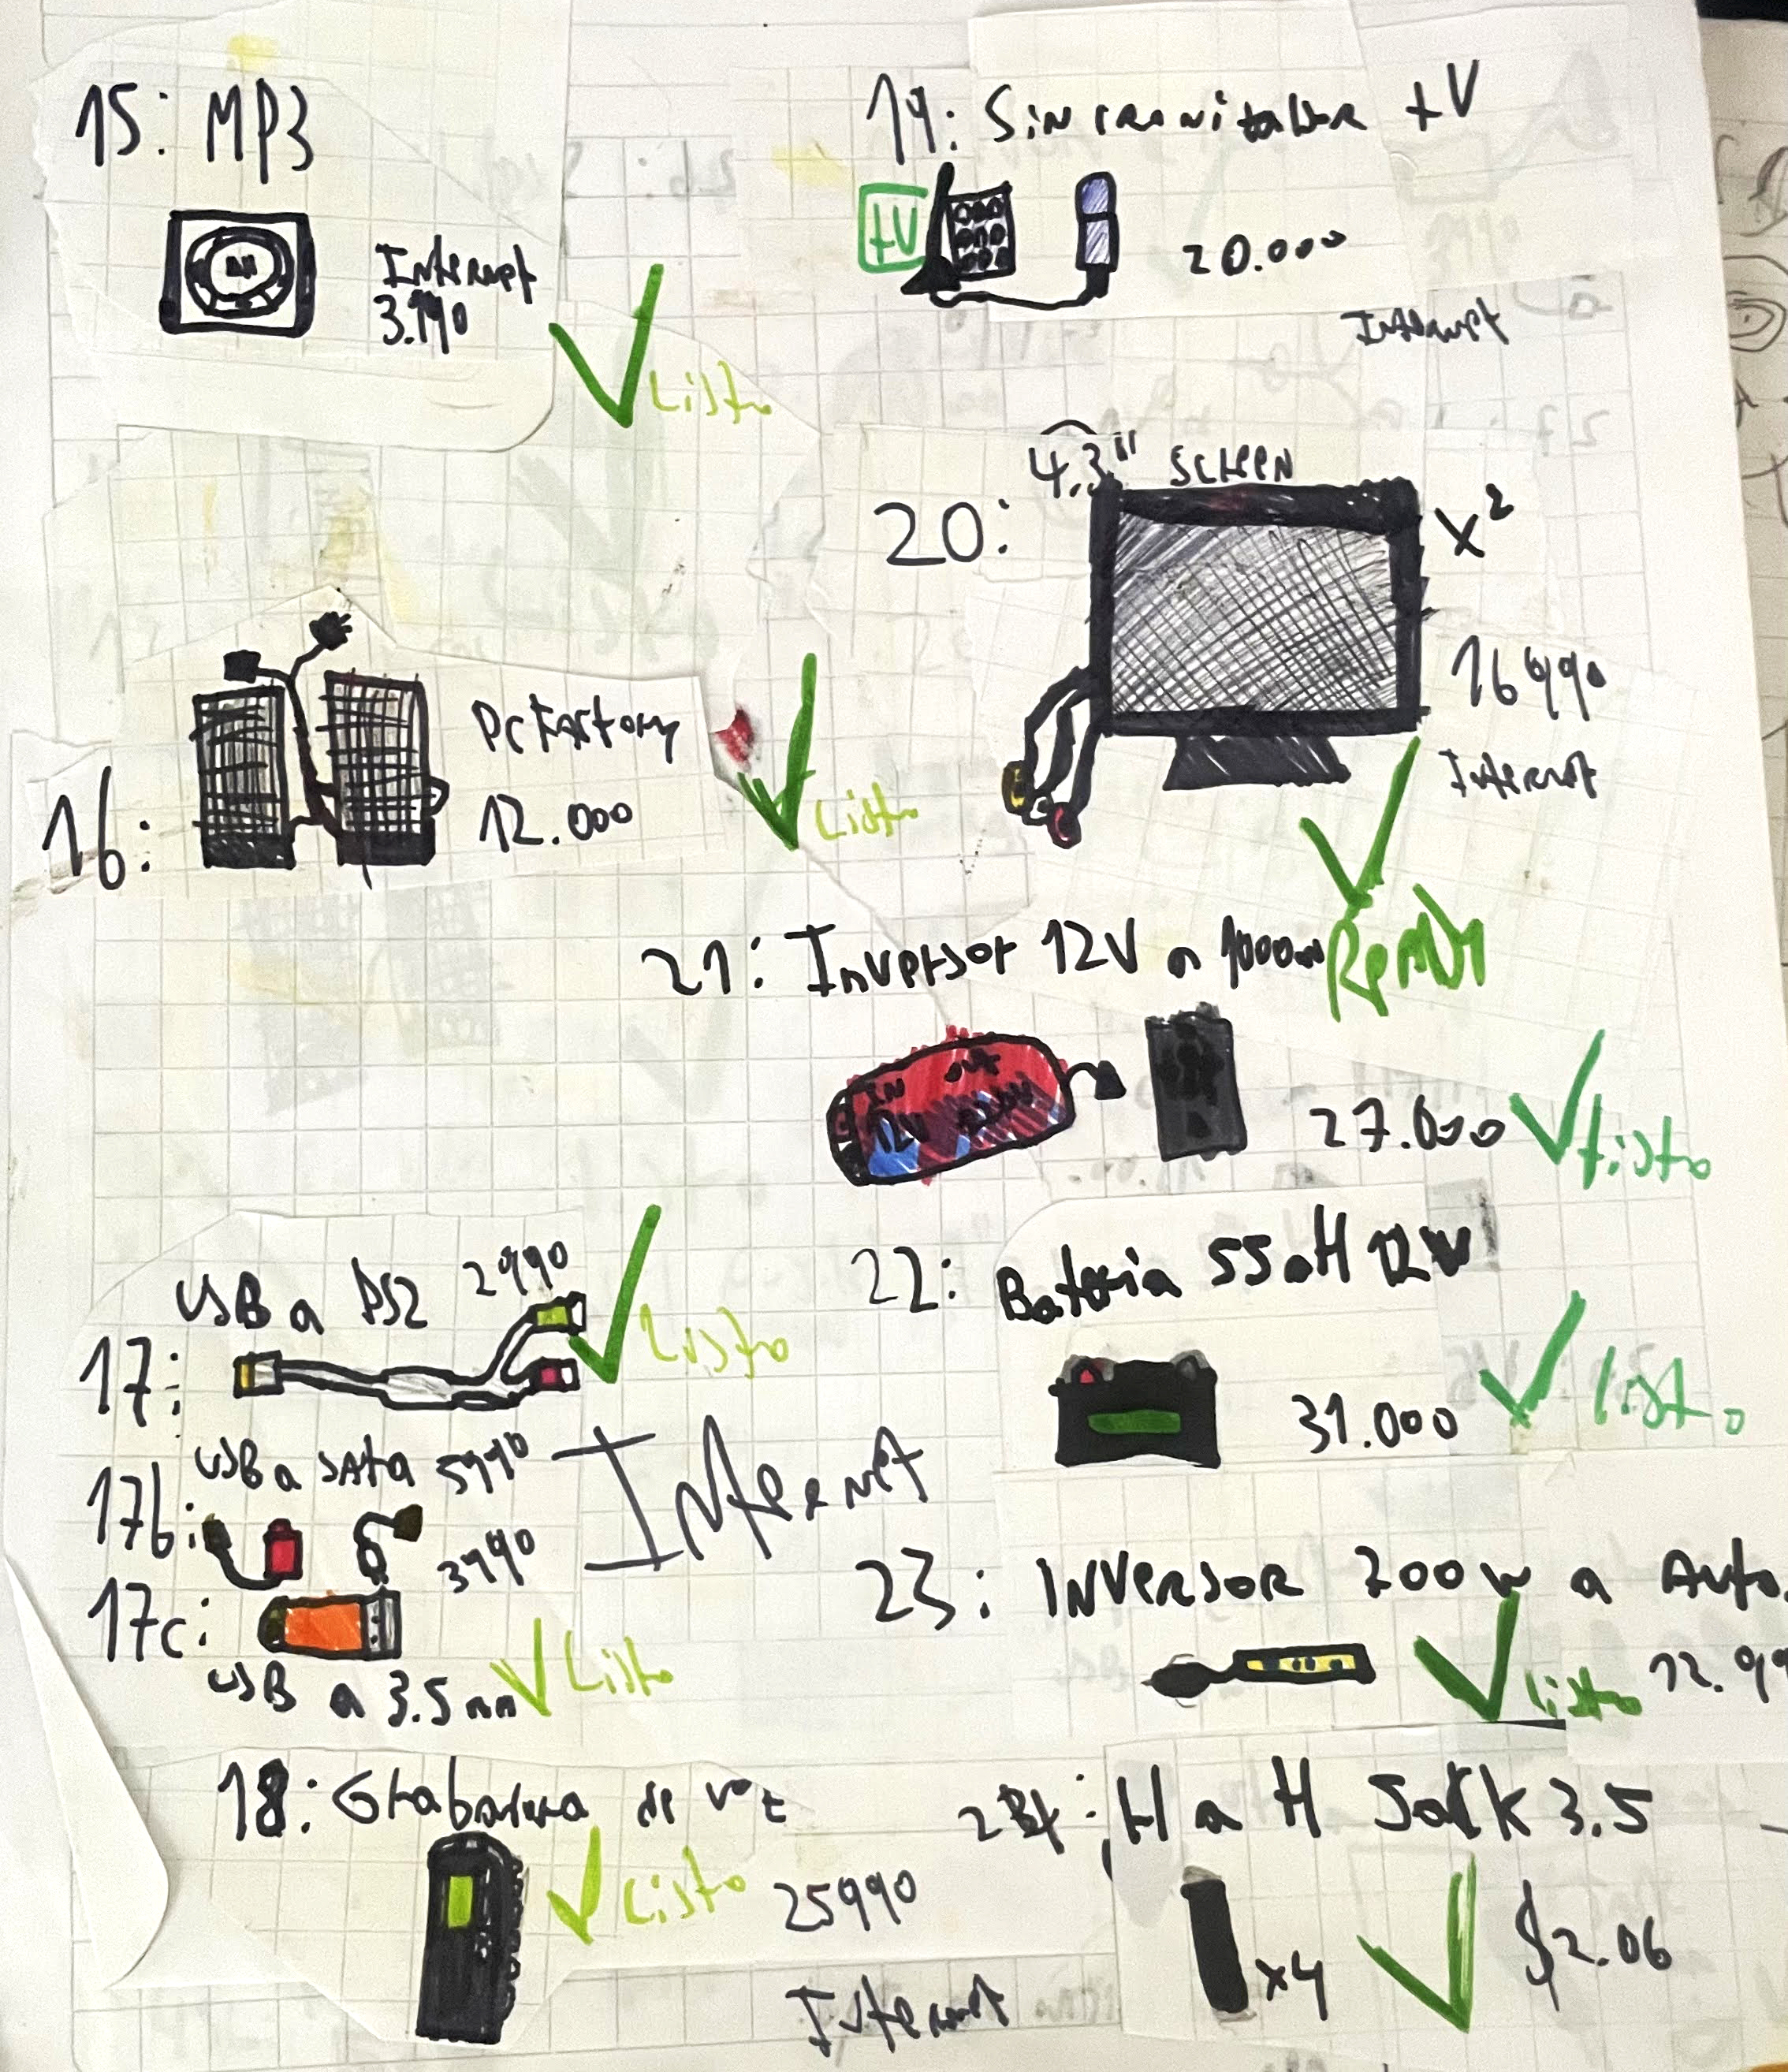 15: MP3
Internet
3.990
Listo
19: Sincronizador tV
tV
20.000
Internet
4.3" Screen
20:
x2
16990
Internet
16:
Pc Factory
12.000
Listo
21: Inversor 12V a 1000w
Ready
IN
out
12V
220V
27.000
Listo
USB a PS2 2990
17:
Listo
22: Bateria 55aH 12V
31.000
Listo
USB a SAtA 5990
17b:
3990
Internet
17c:
USB a 3.5mm
Listo
23: INVERSOR 200w a Auto
Listo
12.99
18: Grabadora de voz
Listo
25990
Internet
24: H a H Jack 3.5
x4
$2.06